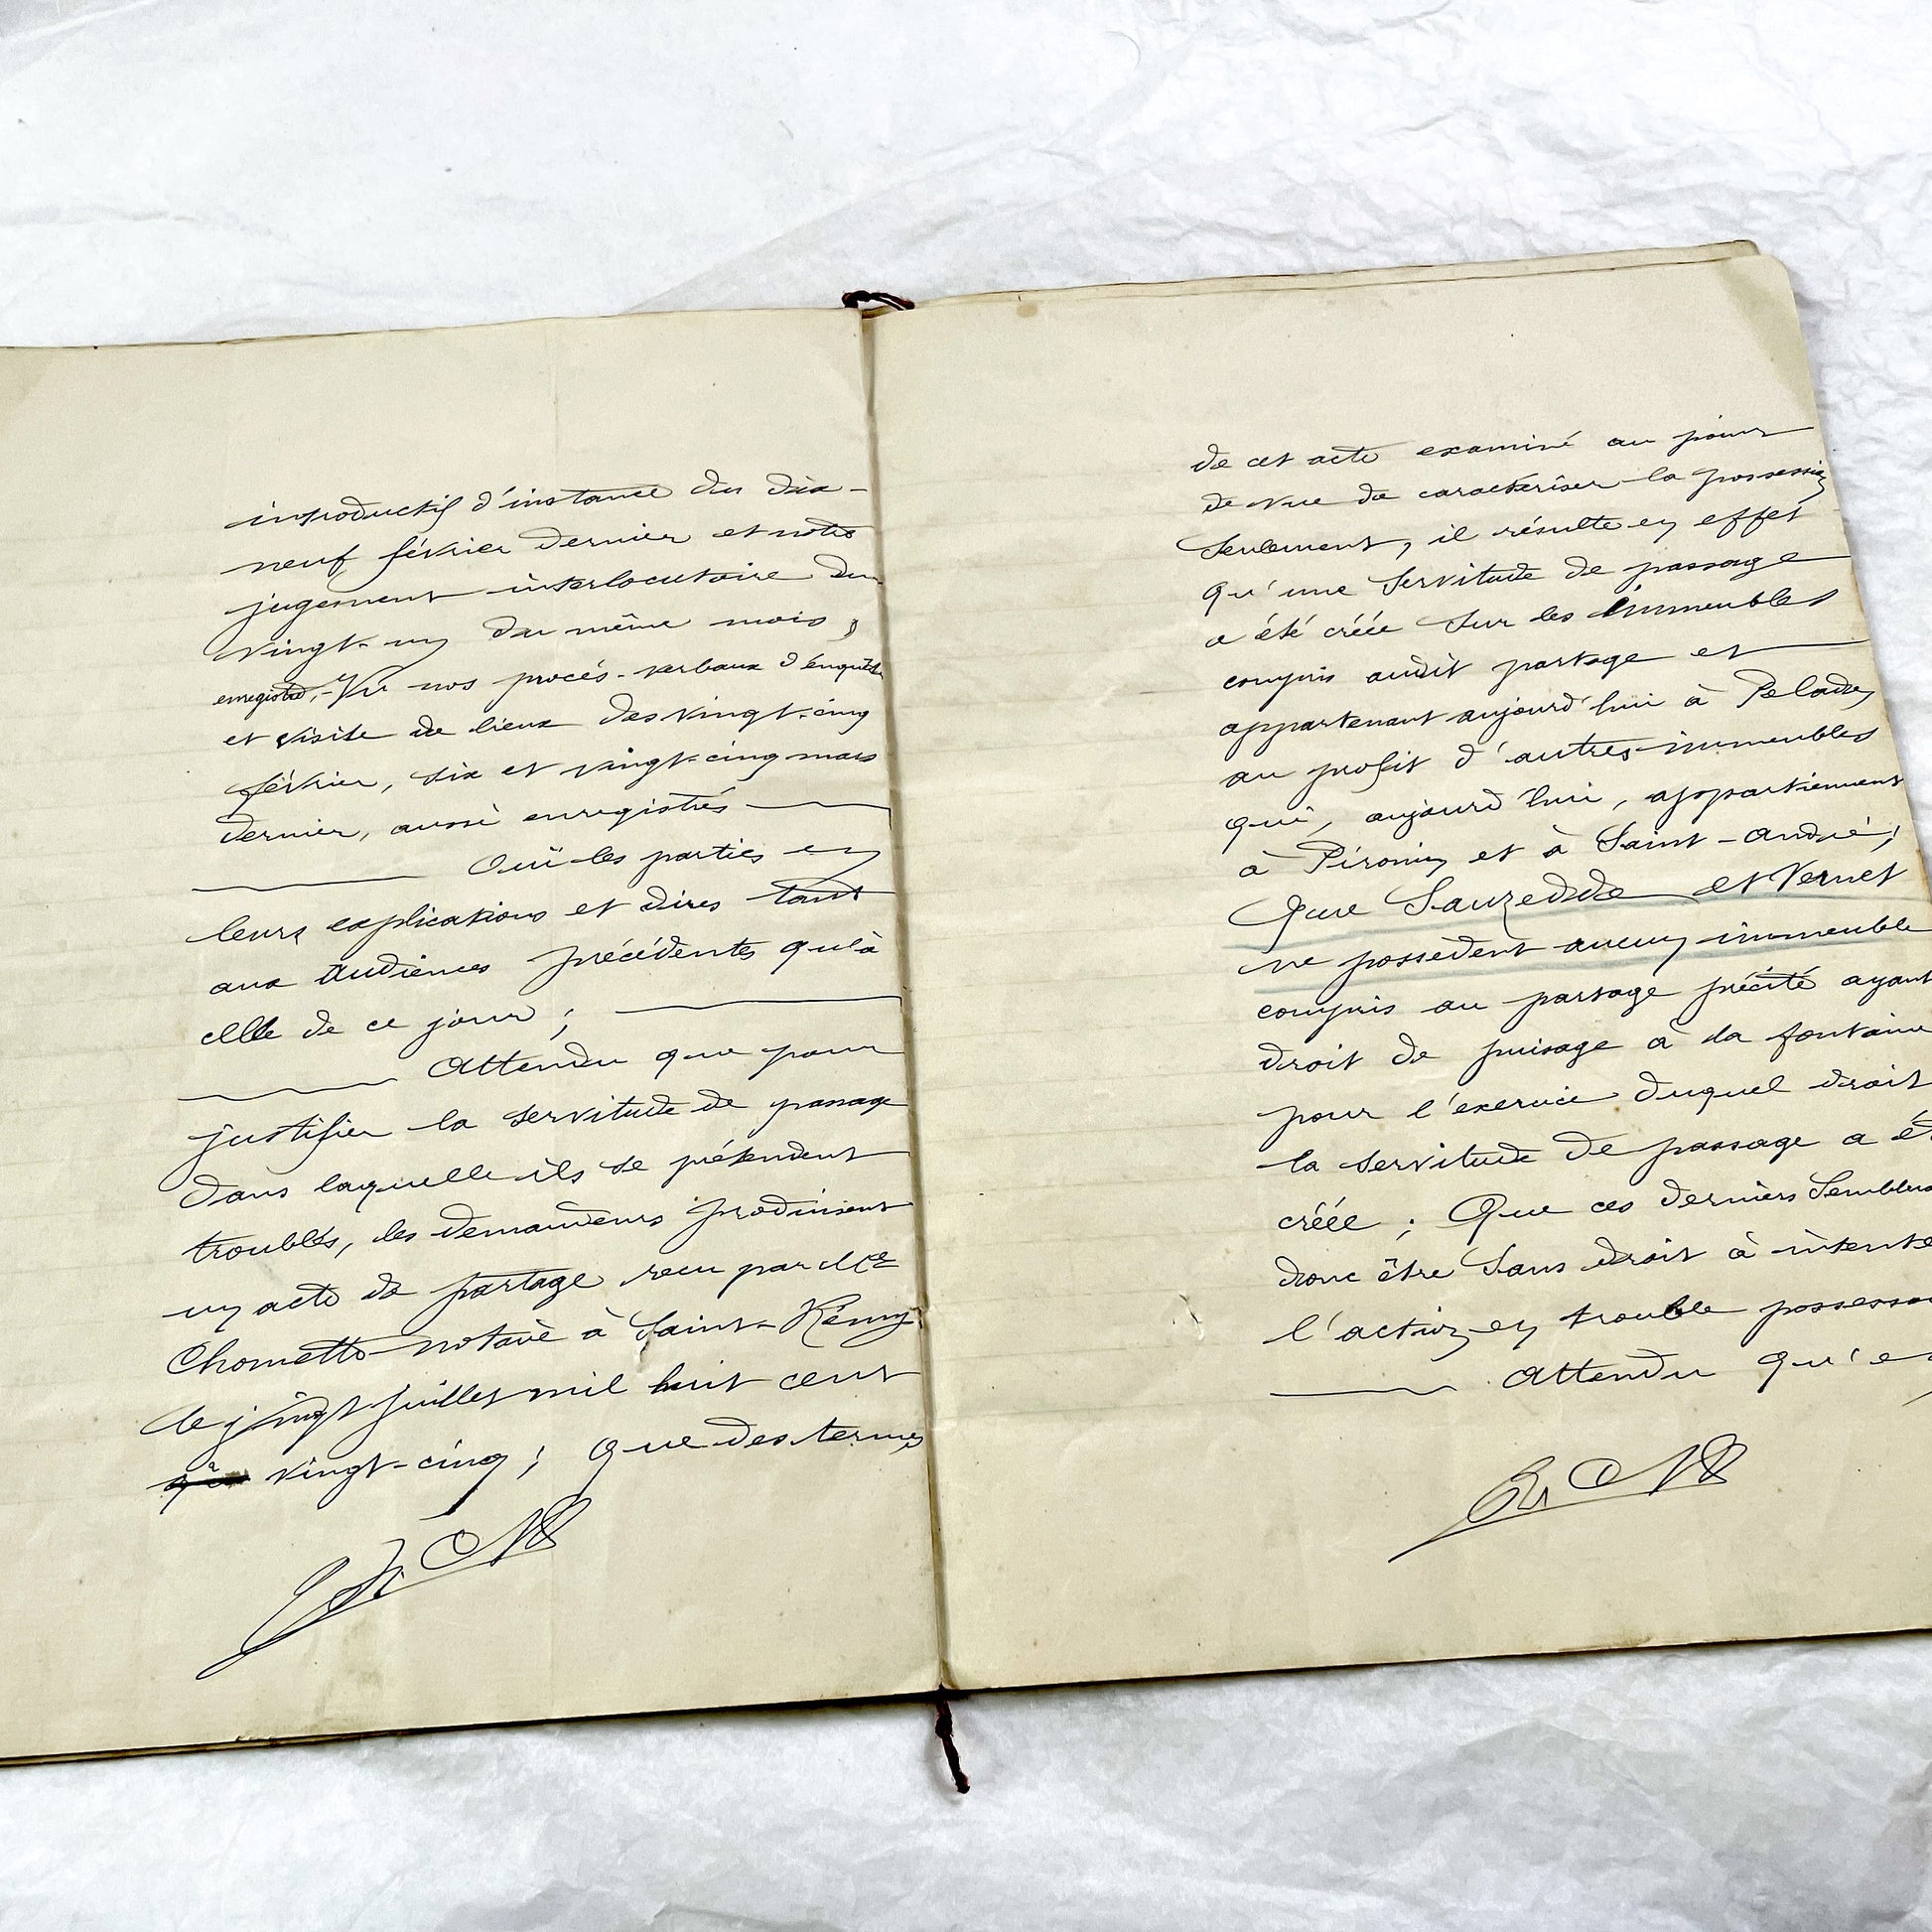 introductif d'instance du dix-
neuf février dernier et notre
jugement interlocutoire du
vingt-un du même mois,
enregistré,- Vu nos procès-verbaux d'enquête
et visite de lieux des vingt-cinq
février, six et vingt-cinq mars
dernier, aussi enregistrés
Ouï les parties en
leurs explications et dires tant
aux audiences précédentes qu'à
celle de ce jour ;
Attendu que pour
justifier la servitude de passage
dans laquelle ils se prétendent
troublés, les demandeurs produisent
un acte de partage reçu par Me
Chomette notaire à Saint-Rémy
le vingt juillet mil huit cent
vingt-cinq ; que des termes
de cet acte examiné au point
de vue de caractériser la possession
seulement, il résulte en effet
qu'une servitude de passage
a été créée sur les immeubles
compris audit partage et
appartenant aujourd'hui à Peladey
au profit d'autres immeubles
qui, aujourd'hui, appartiennent
à Pironin et à Saint-André ;
Que Sauzedde et Vernet
ne possèdent aucun immeuble
compris au partage précité ayant
droit de puisage à la fontaine
pour l'exercice duquel droit
la servitude de passage a ét
créée ; Que ces derniers semblen
donc être sans droit à intente
l'action en trouble possesso
Attendu qu'e